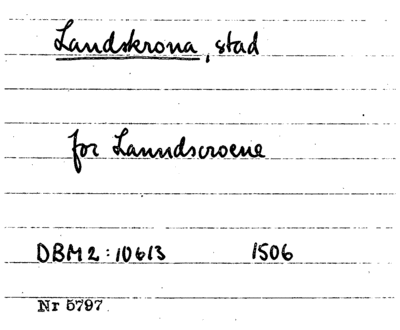 Landskrona, stad
for Lanndscroene
DBM 2:10613 1506
Nr 5797